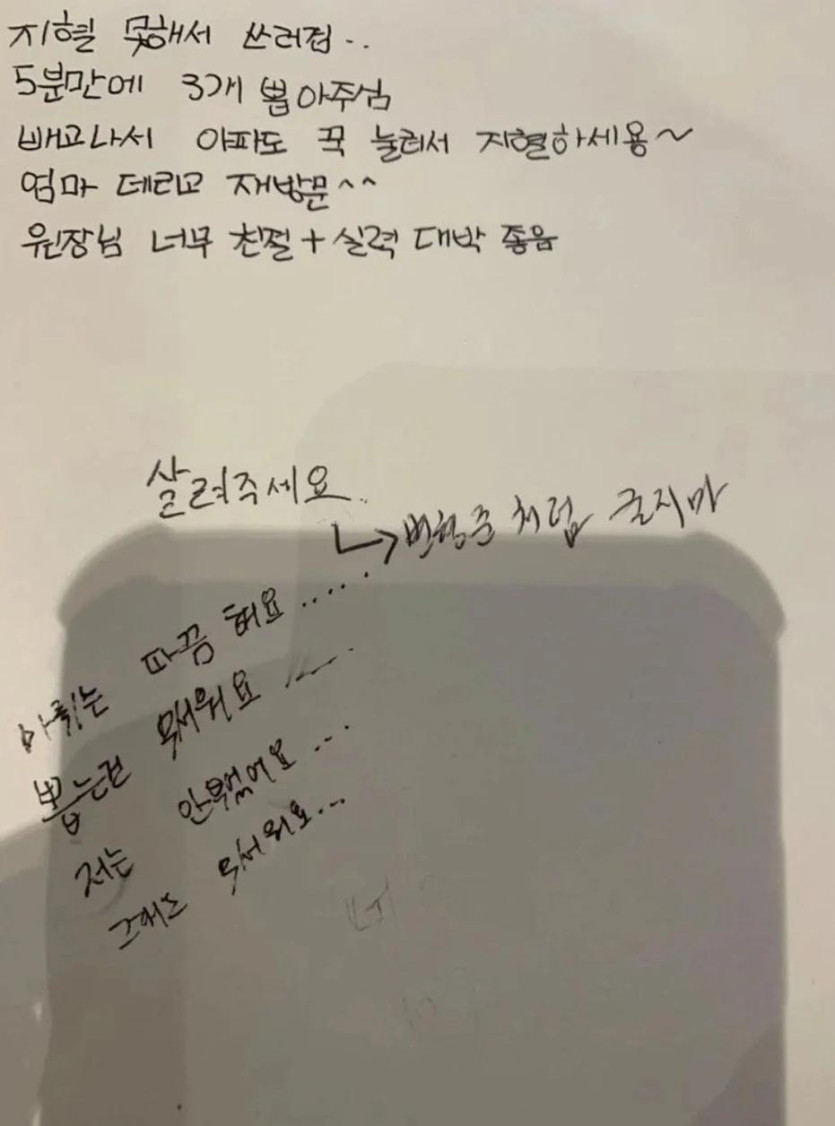 지혈 못해서 쓰러짐..
5분만에 3개 뽑아주심
빼고나서 아파도 꾹 눌러서 지혈하세용~
엄마 데리고 재방문^^
원장님 너무 친절+실력 대박 좋음
살려주세요..
↳ 변형준처럼 굴지마
마취는 따끔해요.....
뽑는건 무서워요
저는 안울었어요...
그래도 무서워요...